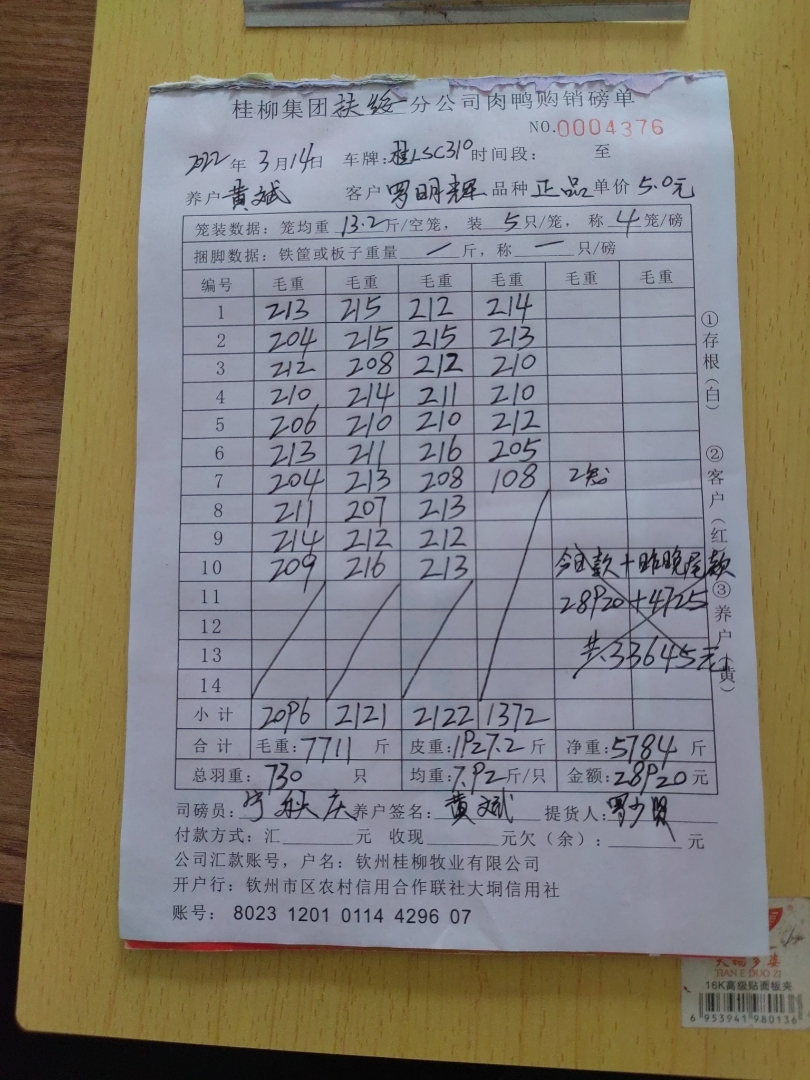 桂柳集团扶绥分公司肉鸭购销磅单
NO.0004376
2022年3月14日 车牌:桂LSC310 时间段: 至
养户 黄斌 客户 罗明辉 品种 正品 单价 5.0元
笼装数据: 笼均重 13.2 斤/空笼, 装 5 只/笼, 称 4 笼/磅
捆脚数据: 铁筐或板子重量 / 斤, 称 一 只/磅
编号 毛重 毛重 毛重 毛重 毛重 毛重
1 213 215 212 214
2 204 215 215 213
3 212 208 212 210
4 210 214 211 210
5 206 210 210 212
6 213 211 216 205
7 204 213 208 108 2笼
8 211 207 213
9 214 212 212
10 209 216 213
今日款+昨晚尾款
11
28920+4725
12
13
共33645元
14
小计 2096 2121 2122 1372
合计 毛重:7711 斤 皮重:1927.2 斤 净重:5784 斤
总羽重: 730 只 均重:7.92 斤/只 金额:28920 元
司磅员: 养户签名: 黄斌 提货人: 罗少贤
付款方式: 汇 元 收现 元欠(余): 元
公司汇款账号, 户名: 钦州桂柳牧业有限公司
开户行: 钦州市区农村信用合作联社大垌信用社
账号: 8023 1201 0114 4296 07
①存根(白) ②客户(红) ③养户(黄)
TIAN E DUO ZI
16K高级贴面板夹
6 953941 980136